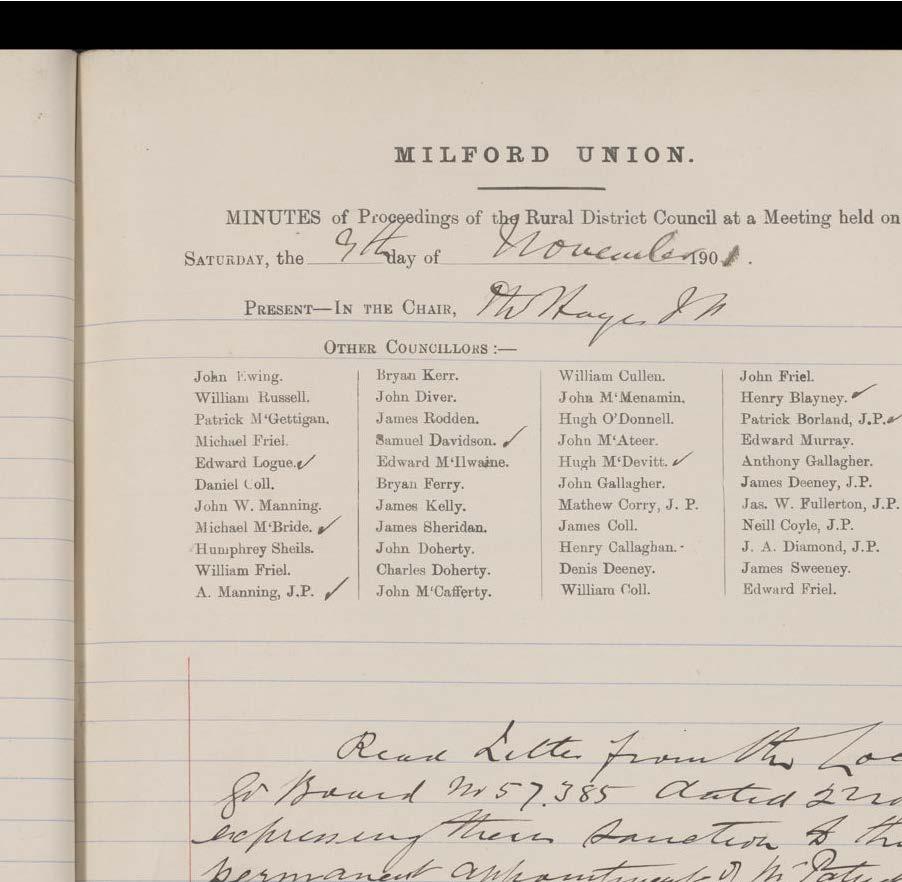 MILFORD UNION.
MINUTES of Proceedings of the Rural District Council at a Meeting held on
SATURDAY, the 9th day of November 1901.
PRESENT—IN THE CHAIR, Mr Hayes
OTHER COUNCILLORS :—
John Ewing.
William Russell.
Patrick M'Gettigan.
Michael Friel.
Edward Logue. ✓
Daniel Coll.
John W. Manning.
Michael M'Bride. ✓
Humphrey Sheils.
William Friel.
A. Manning, J.P. ✓
Bryan Kerr.
John Diver.
James Rodden.
Samuel Davidson. ✓
Edward M'Ilwaine.
Bryan Ferry.
James Kelly.
James Sheridan.
John Doherty.
Charles Doherty.
John M'Cafferty.
William Cullen.
John M'Menamin.
Hugh O'Donnell.
John M'Ateer.
Hugh M'Devitt. ✓
John Gallagher.
Mathew Corry, J. P.
James Coll.
Henry Callaghan.
Denis Deeney.
William Coll.
John Friel.
Henry Blayney. ✓
Patrick Borland, J.P. ✓
Edward Murray.
Anthony Gallagher.
James Deeney, J.P.
Jas. W. Fullerton, J.P.
Neill Coyle, J.P.
J. A. Diamond, J.P.
James Sweeney.
Edward Friel.
Read Letter from the Loc
Gt Board No 57.385 dated 22nd
expressing their sanction to the
permanent appointment of Mr